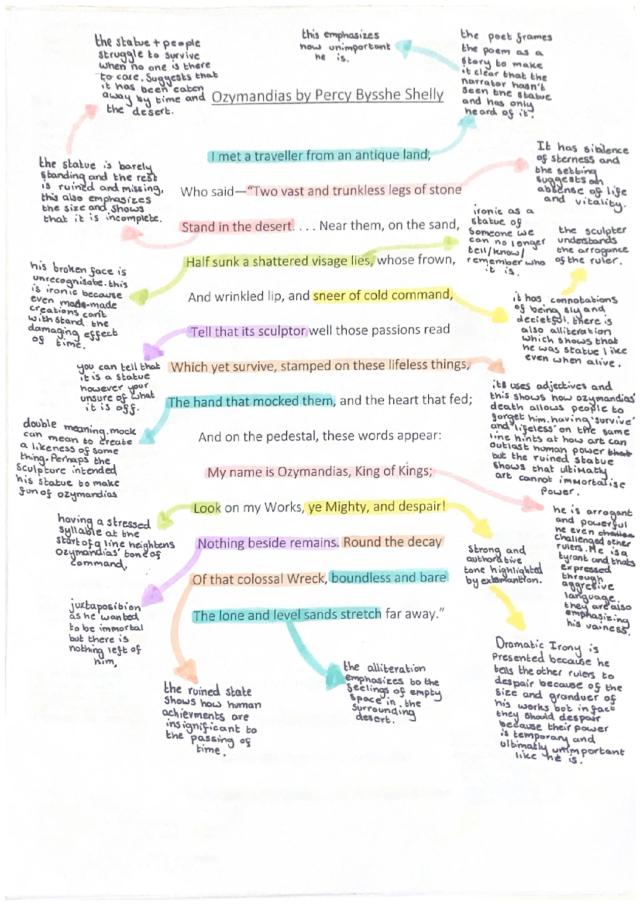 the statue + people
struggle to survive
when no one is there
to care. Suggests that
it has been eaten
away by time and
the desert.
this emphasizes
how unimportant
he is.
the poet frames
the poem as a
story to make
it clear that the
narrator hasn't
seen the statue
and has only
heard of it.
Ozymandias by Percy Bysshe Shelly
I met a traveller from an antique land;
Who said—“Two vast and trunkless legs of stone
Stand in the desert. . . . Near them, on the sand,
Half sunk a shattered visage lies, whose frown,
And wrinkled lip, and sneer of cold command,
Tell that its sculptor well those passions read
Which yet survive, stamped on these lifeless things,
The hand that mocked them, and the heart that fed;
And on the pedestal, these words appear:
My name is Ozymandias, King of Kings;
Look on my Works, ye Mighty, and despair!
Nothing beside remains. Round the decay
Of that colossal Wreck, boundless and bare
The lone and level sands stretch far away.”
the statue is barely
standing and the rest
is ruined and missing,
this also emphasizes
the size and shows
that it is incomplete.
his broken face is
unrecognisable. this
is ironic because
even made-made
creations can't
withstand the
damaging effect
of time.
you can tell that
it is a statue
however your
unsure of what
it is off.
double meaning. mock
can mean to create
a likeness of some
thing. Perhaps the
Sculpture intended
his statue to make
fun of ozymandias
having a stressed
syllable at the
start of a line heightens
Ozymandias' tone of
command,
juxtaposition
as he wanted
to be immortal
but there is
nothing left of
him,
the ruined state
shows how human
achievments are
insignificant to
the passing of
time.
the alliteration
emphasizes to the
feelings of empty
space in the
surrounding
desert.
It has siblence
of sterness and
the setting
suggests an
absense of life
and vitality.
ironic as a
statue of
someone we
can no longer
tell/know/
remember who
it is.
the sculptor
understands
the arrogance
of the ruler.
it has connotations
of being sly and
decietful. there is
also alliteration
which shows that
he was statue like
even when alive.
its uses adjectives and
this shows how ozymandias'
death allows people to
forget him. having 'survive'
and 'lifeless' on the same
line hints at how art can
outlast human power but
but the ruined statue
shows that ultimatly
art cannot immortalise
power.
he is arrogant
and powerful
he even
challenged other
rulers. He is a
tyrant and thats
expressed
through
aggresive
language.
they are also
emphasizing
his vainess.
Strong and
authorative
tone highlighted
by exlamantion.
Dramatic Irony is
Presented because he
tells the other rulers to
despair because of the
size and granduer of
his works but in fact
they should despair
because their power
is temporary and
ultimatly unimportant
like he is.